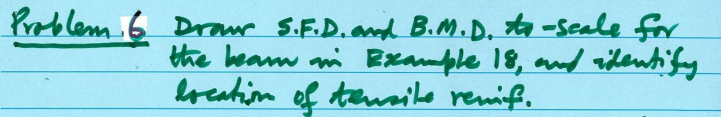 Problem 6 Draw S.F.D. and B.M.D. to-scale for
the beam in Example 18, and identify
location of tensile reinf.